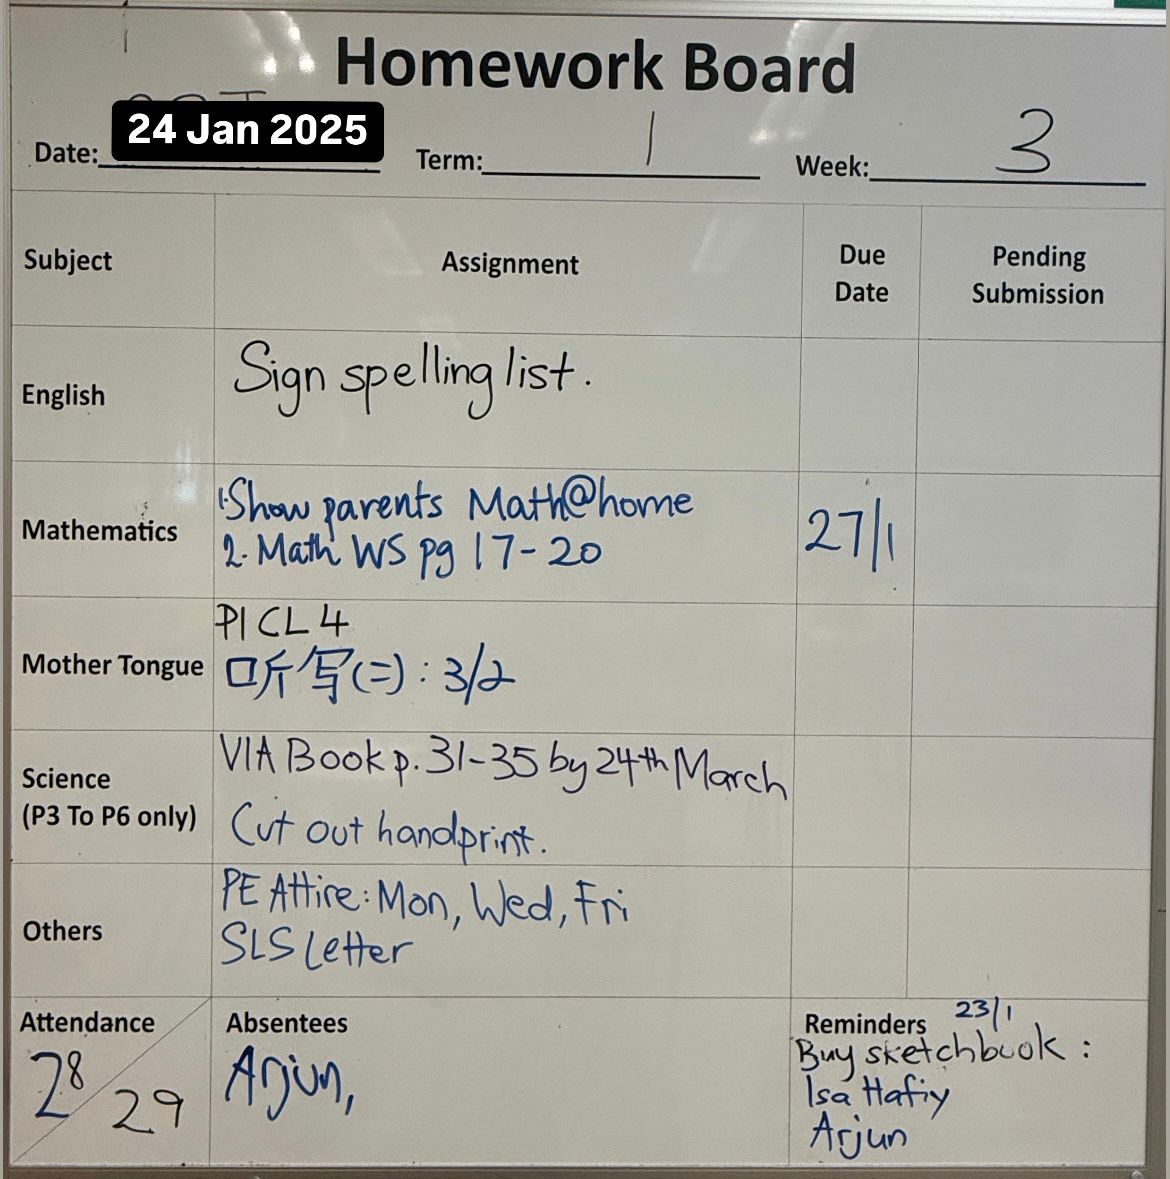 Homework Board
Date: 24 Jan 2025 Term: 1 Week: 3
Subject Assignment Due Date Pending Submission
English Sign spelling list.
Mathematics 1. Show parents Math@home
2. Math WS pg 17-20 27/1
Mother Tongue P1 CL 4
听写(二): 3/2
Science
(P3 To P6 only) VIA Book p. 31-35 by 24th March
Cut out handprint.
Others PE Attire: Mon, Wed, Fri
SLS Letter
Attendance 28/29
Absentees
Arjun,
Reminders 23/1
Buy sketchbook:
Isa Hafiy
Arjun